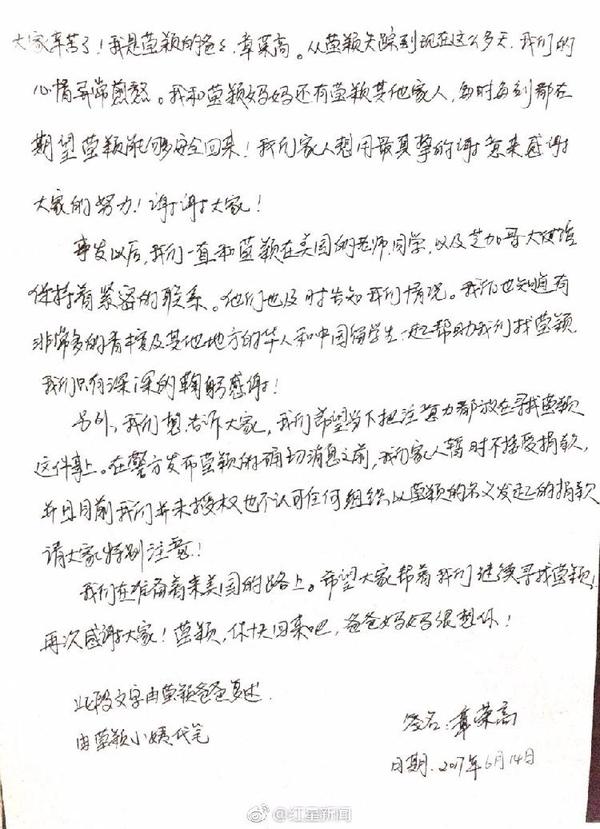 大家辛苦了！我是莹颖的爸爸章荣高。从莹颖失踪到现在这么多天，我们的
心情异常煎熬。我和莹颖妈妈还有莹颖其他家人，每时每刻都在
期望莹颖能够安全回来！我们家人想用最真挚的谢意来感谢
大家的努力！谢谢大家！
事发以后，我们一直和莹颖在美国的老师、同学，以及芝加哥大使馆
保持着紧密的联系。他们也及时告知我们情况。我们也知道有
非常多的香槟及其他地方的华人和中国留学生一起帮助我们找莹颖，
我们只有深深的鞠躬感谢！
另外，我们想告诉大家，我们希望当下把注意力都放在寻找莹颖
这件事上。在警方发布莹颖的确切消息之前，我们家人暂时不接受捐款，
并且目前我们并未授权也不认可任何组织以莹颖的名义发起的捐款
请大家特别注意！
我们在准备着来美国的路上。希望大家帮着我们继续寻找莹颖，
再次感谢大家！莹颖，你快回来吧，爸爸妈妈很想你！
此段文字由莹颖爸爸口述
由莹颖小姨代笔
签名：章荣高
日期：2017年6月14日
@红星新闻